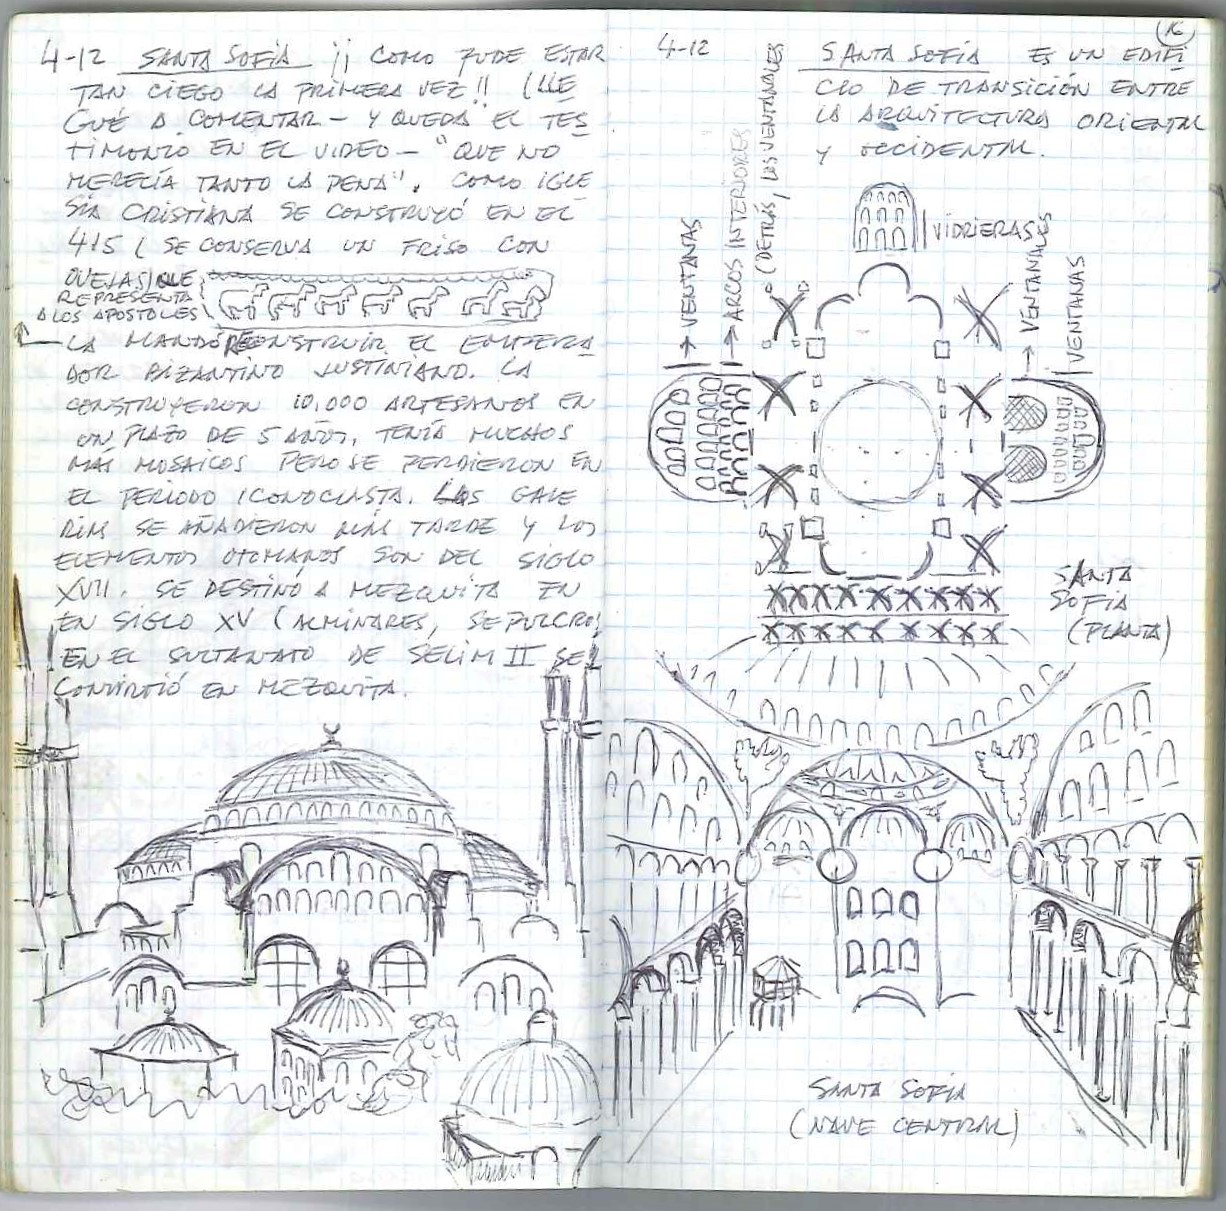 4-12 SANTA SOFÍA ¡¡ COMO PUDE ESTAR
TAN CIEGO LA PRIMERA VEZ!! (LLE
GUÉ A COMENTAR - Y QUEDA EL TES
TIMONIO EN EL VIDEO - "QUE NO
MERECÍA TANTO LA PENA". COMO IGLE
SIA CRISTIANA SE CONSTRUYÓ EN EL
415 ( SE CONSERVA UN FRISO CON
OVEJAS) QUE
REPRESENTA
A LOS APOSTOLES
LA MANDÓ RECONSTRUIR EL EMPERA
DOR BIZANTINO JUSTINIANO. LA
CONSTRUYERON 10.000 ARTESANOS EN
UN PLAZO DE 5 AÑOS. TENÍA MUCHOS
MÁS MOSAICOS PERO SE PERDIERON EN
EL PERIODO ICONOCLASTA. LAS GALE
RIAS SE AÑADIERON MÁS TARDE Y LOS
ELEMENTOS OTOMANOS SON DEL SIGLO
XVII. SE DESTINÓ A MEZQUITA EN
EN SIGLO XV (ALMINARES, SEPULCROS)
EN EL SULTANATO DE SELIM II SE
CONVIRTIÓ EN MEZQUITA.
16
4-12 SANTA SOFÍA ES UN EDIFI
CIO DE TRANSICIÓN ENTRE
LA ARQUITECTURA ORIENTAL
Y OCCIDENTAL.
VENTANAS
ARCOS INTERIORES
(DETRÁS, LOS VENTANALES
VIDRIERAS
VENTANALES
VENTANAS
SANTA
SOFÍA
(PLANTA)
SANTA SOFÍA
(NAVE CENTRAL)